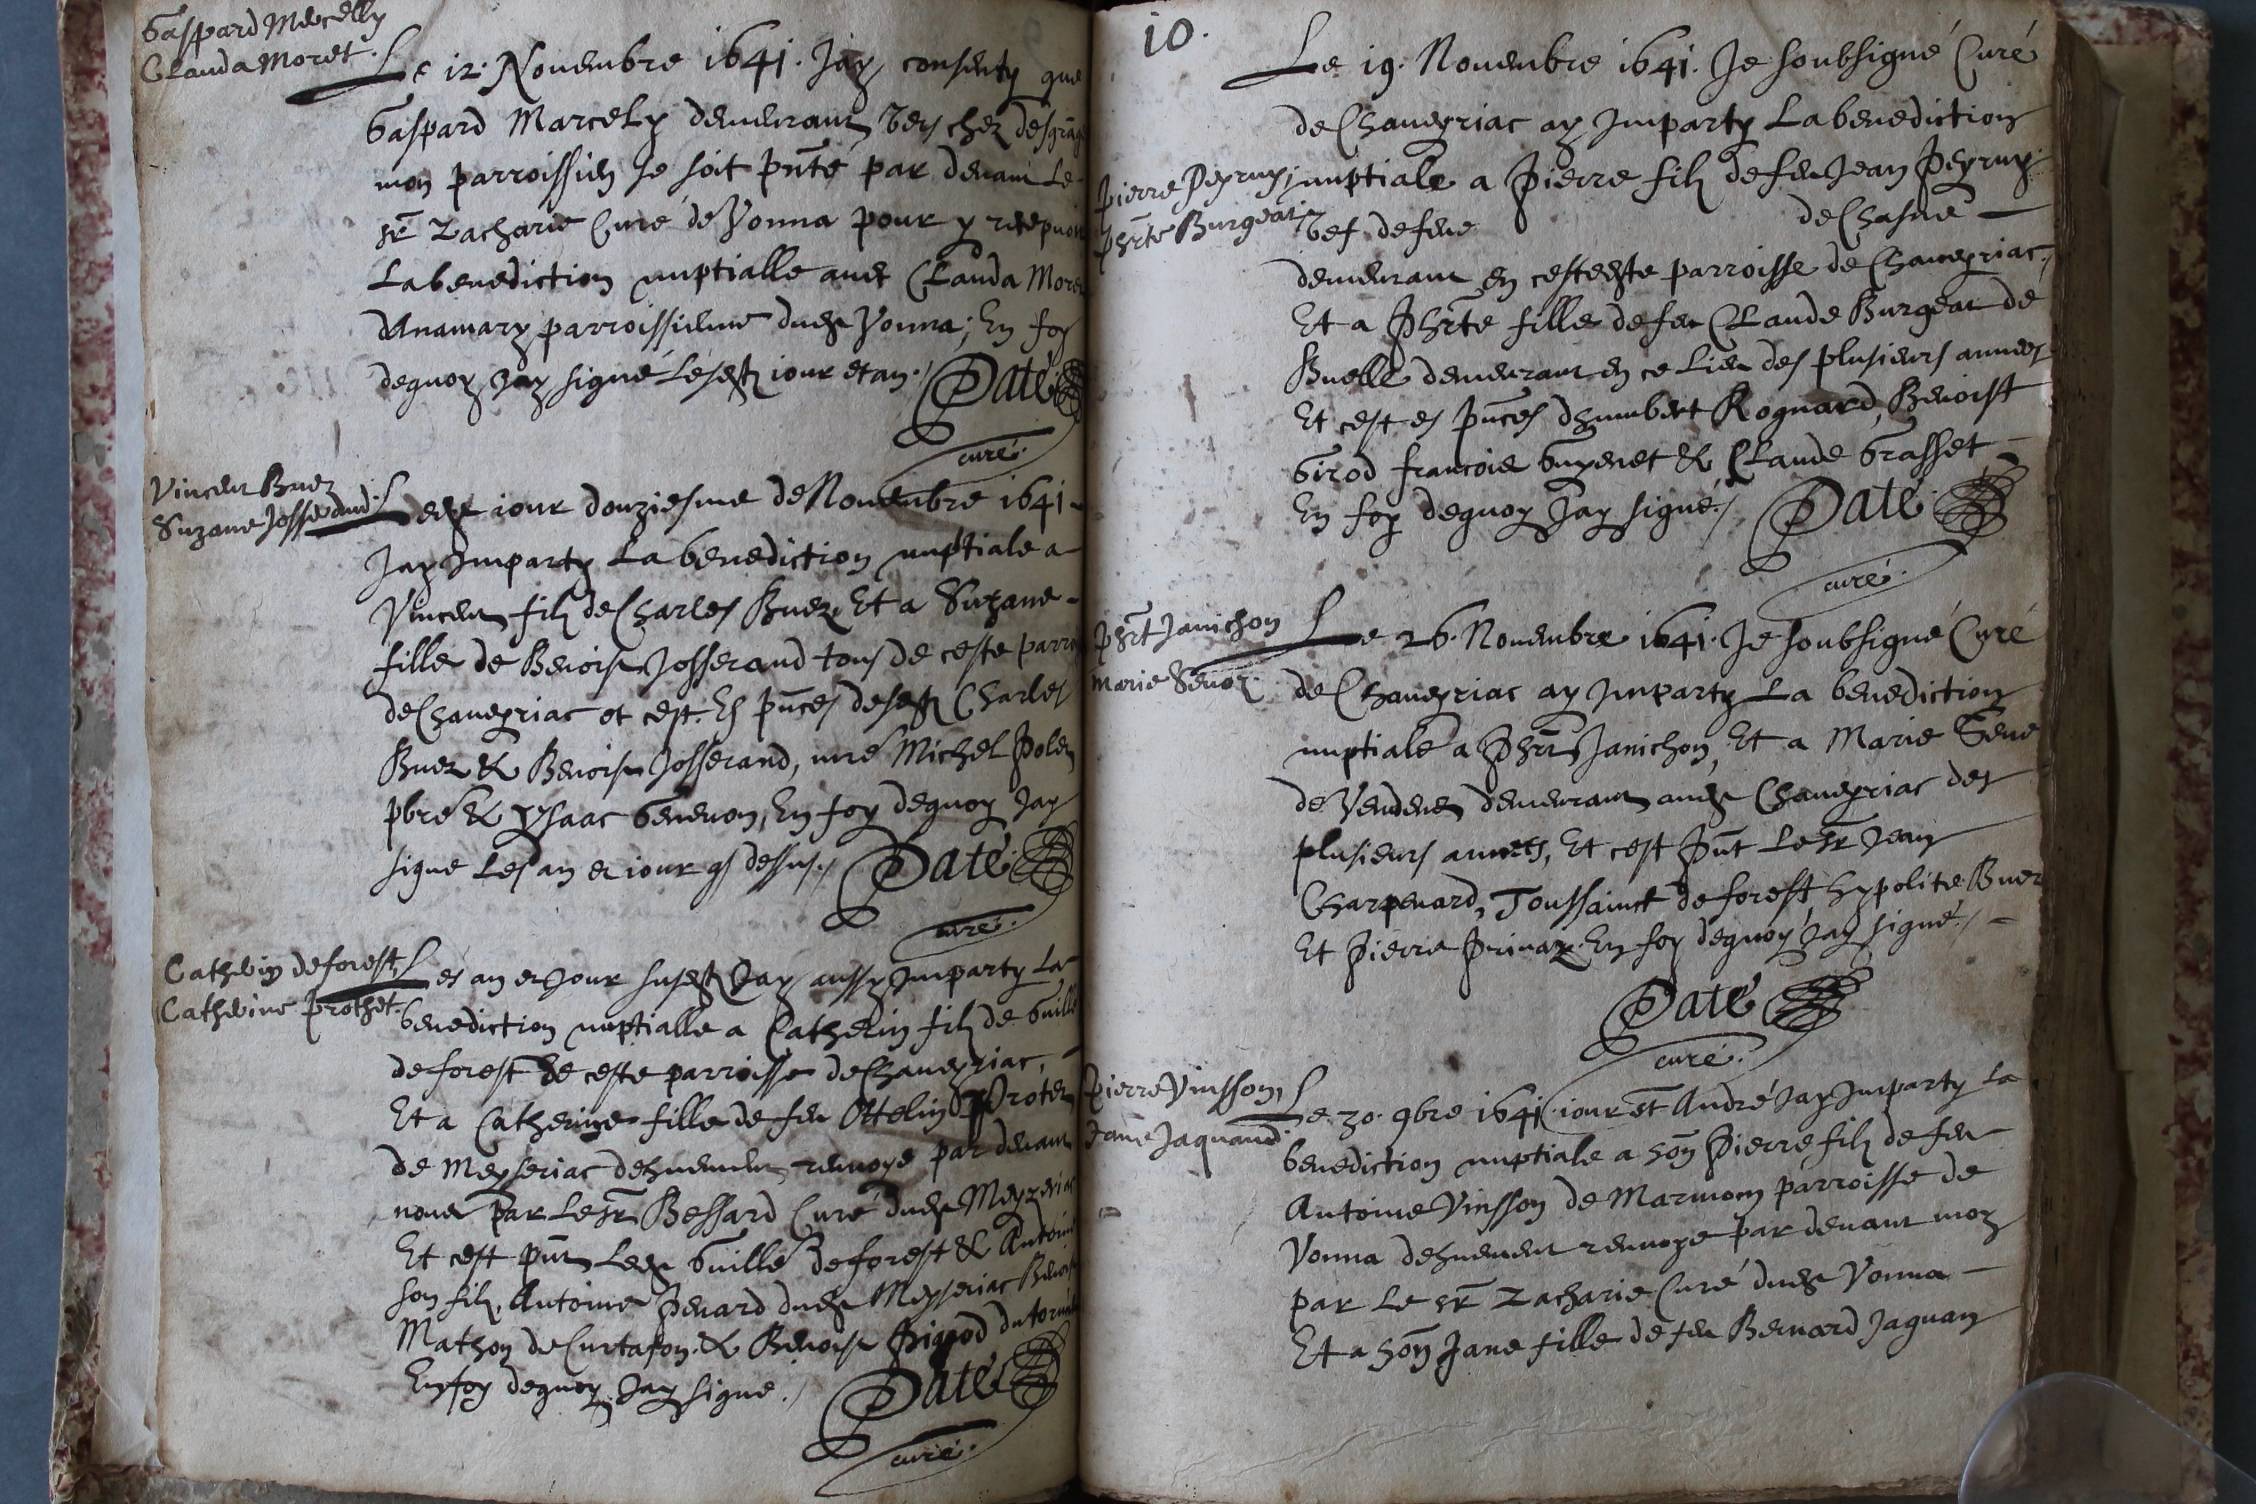 Gaspard Mercelly
Clauda Moret.
Le 12. Novembre 1641. Jay consenty que
Gaspard Marcely demeurant vers chez
mon parroissien se soit pnté par devant le
sr Zacharie Curé de Vonna pour y recepvoir
La benediction nuptialle avec Clauda Moret
parroissienne dudt Vonna; En foy
dequoy Jay signé lesdt jour et an. Daté
curé.
Vincent Buez
Suzane Josserand.
Ledt jour douziesme de Novembre 1641
Jay Imparty La benediction nuptiale a
Vincent filz de Charles Buez Et a Suzane
fille de Benoist Josserand tous de ceste
de Chaveyriac et cest. Es pnces desdt Charles
Buez & Benoist Josserand, mre Michel
pbre & Ysaac Genevon, En foy dequoy Jay
signe Les an et jour q dessus. Daté
curé.
Catherin deforest
Catherine prothet.
Les an et Jour susdt Jay aussy Imparty La
benediction nuptialle a Catherin filz de Guille
deforest de ceste parroisse de Chaveyriac,
Et a Catherine fille de feu Ottelin Protet
de Meyseriac dehuement renvoyé par devant
nous par le sr Bessard Curé dudt Meyzeriac
Et cest pnt Ledt Guille deforest & Antoine
son filz, Antoine Penard dudt Meyseriac Benoist
Mathon de Curtafon & Benoist Pigod
En foy dequoy Jay signe. Daté
curé.
10.
Le 19. Novembre 1641. Je soubsigné Curé
de Chaveyriac ay Imparty La benediction
Pierre Peyruy;
phrte Burgeat
nuptiale a Pierre filz defeu Jean Peyruy
vef defeue de Chasne
demeurant en cestedte parroisse de Chaveyriac,
Et a Phrte fille defeu Claude Burgeat de
Buelle demeurant en ce Lieu des plusieurs annees
Et cest es pnces dhumbert Rognard, Benoist
Girod francois Guyenet & Claude Grasset
En foy dequoy Jay signé. Daté
curé.
Phrt Janichon
Marie
Le 26. Novembre 1641. Je soubsigné Curé
de Chaveyriac ay Imparty La benediction
nuptiale a Phrt Janichon, Et a Marie
de Vendenes demeurant audt Chaveyriac des
plusieurs annees, Et cest Pnt Le Sr Jean
Charpenard, Toussainct deforest hypolite Buer
Et Pierre Privaz En foy dequoy Jay signé.
Daté
curé.
Pierre Vinsson,
Jane Jaquand.
Le 30. 9bre 1641 jour St André Jay Imparty La
benediction nuptiale a hon Pierre filz de feu
Antoine Vinsson de Marmom parroisse de
Vonna dehuement renvoye par devant moy
par Le sr Zacharie Curé dudt Vonna
Et a hon Jane fille de feu Bernard Jaquan